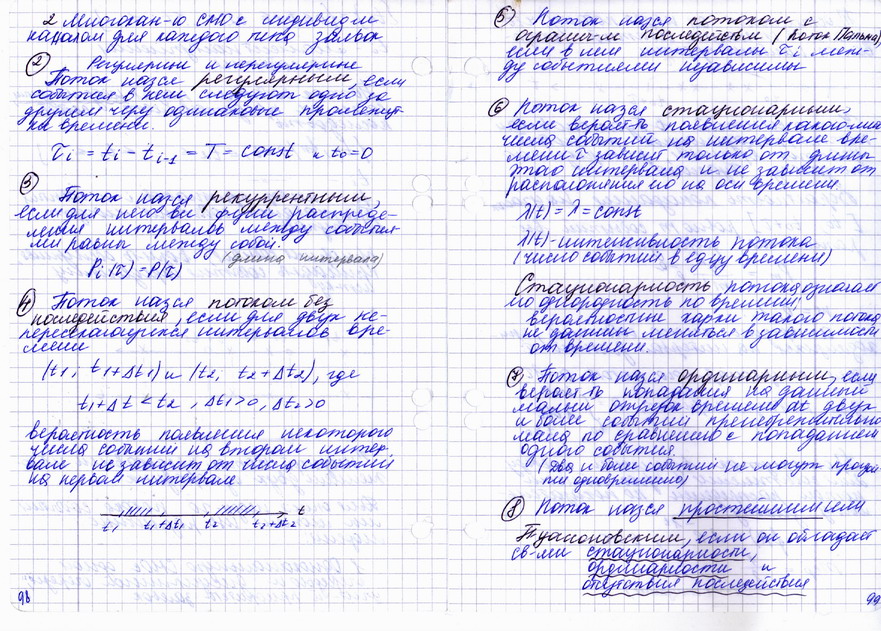 2 Многокан-ю СМО с индивидом
каналом для каждого типа заявок
② Регулярные и нерегулярные
Поток назся регулярным, если
события в нем следуют одно за
другим через одинаковые промежут-
ки времени.
τi = ti - ti-1 = T = const и t0=0
③
Поток назся рекуррентным,
если для него все фции распреде-
ления интервалов между события-
ми равны между собой.
(длина интервала)
Pi(τ) = P(τ)
④ Поток назся потоком без
последействия, если для двух не-
пересекающихся интервалов вре-
мени
(t1, t1+Δt1) и (t2, t2+Δt2), где
t1+Δt < t2, Δt1>0, Δt2>0
вероятность появления некоторого
числа событий на втором интер-
вале не зависит от числа событий
на первом интервале
t1 t1+Δt1 t2 t2+Δt2 t
98
⑤ Поток назся потоком с
огранич-м последействием (поток Пальма),
если в нем интервалы τi меж-
ду событиями независимы
⑥ Поток назся стационарным,
если вероят-ть появления какого-либо
числа событий на интервале вре-
мени τ зависит только от длины
этого интервала и не зависит от
расположения его на оси времени
λ(t) = λ = const
λ(t) - интенсивность потока
(число событий в едцу времени)
Стационарность потока означает
его однородность по времени:
вероятностные харки такого потока
не должны меняться в зависимости
от времени.
⑦ Поток назся ординарным, если
вероят-ть попадания на данный
малый отрезок времени dt двух
и более событий пренебрежительно
мала по сравнению с попаданием
одного события.
(Два и более событий не могут произой-
ти одновременно)
⑧ Поток назся простейшим или
Пуассоновским, если он обладает
св-ми стационарности,
ординарности и
отсутствия последействия
99